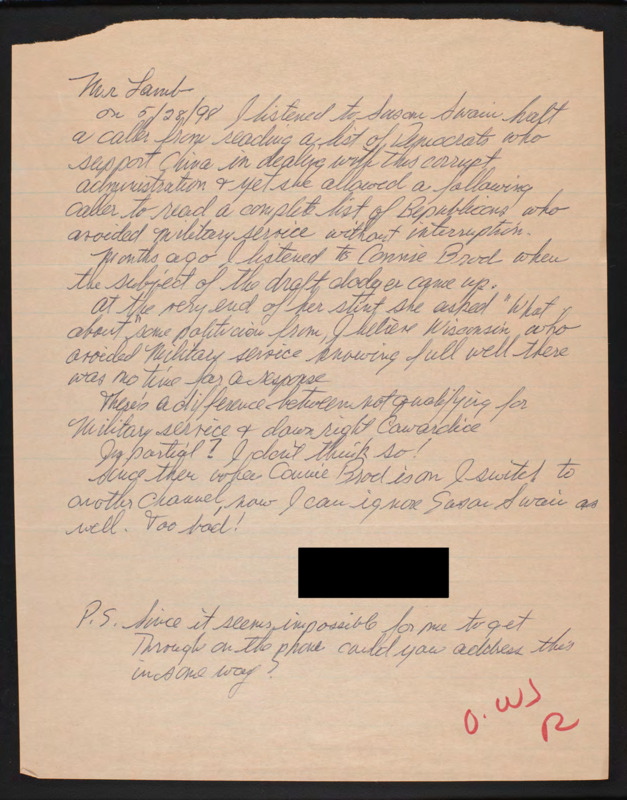 Mr Lamb
on 5/28/98 I listened to Susan Swain halt
a caller from reading a list of Democrats who
support China in dealing with this corrupt
administration & yet she allowed a following
caller to read a complete list of Republicans who
avoided military service without interruption.
Months ago I listened to Connie Brod when
the subject of the draft dodger came up.
at the very end of her stint she asked "What
about" some politician from, I believe Wisconsin, who
avoided Military service knowing full well there
was no time for a response
There's a difference between not qualifying for
Military service & down right Cowardice
Impartial? I don't think so!
Since then when Connie Brod is on I switch to
another channel, now I can ignore Susan Swain as
well. Too bad!
P.S. Since it seems impossible for me to get
Through on the phone could you address this
in some way?
O. WJ
R